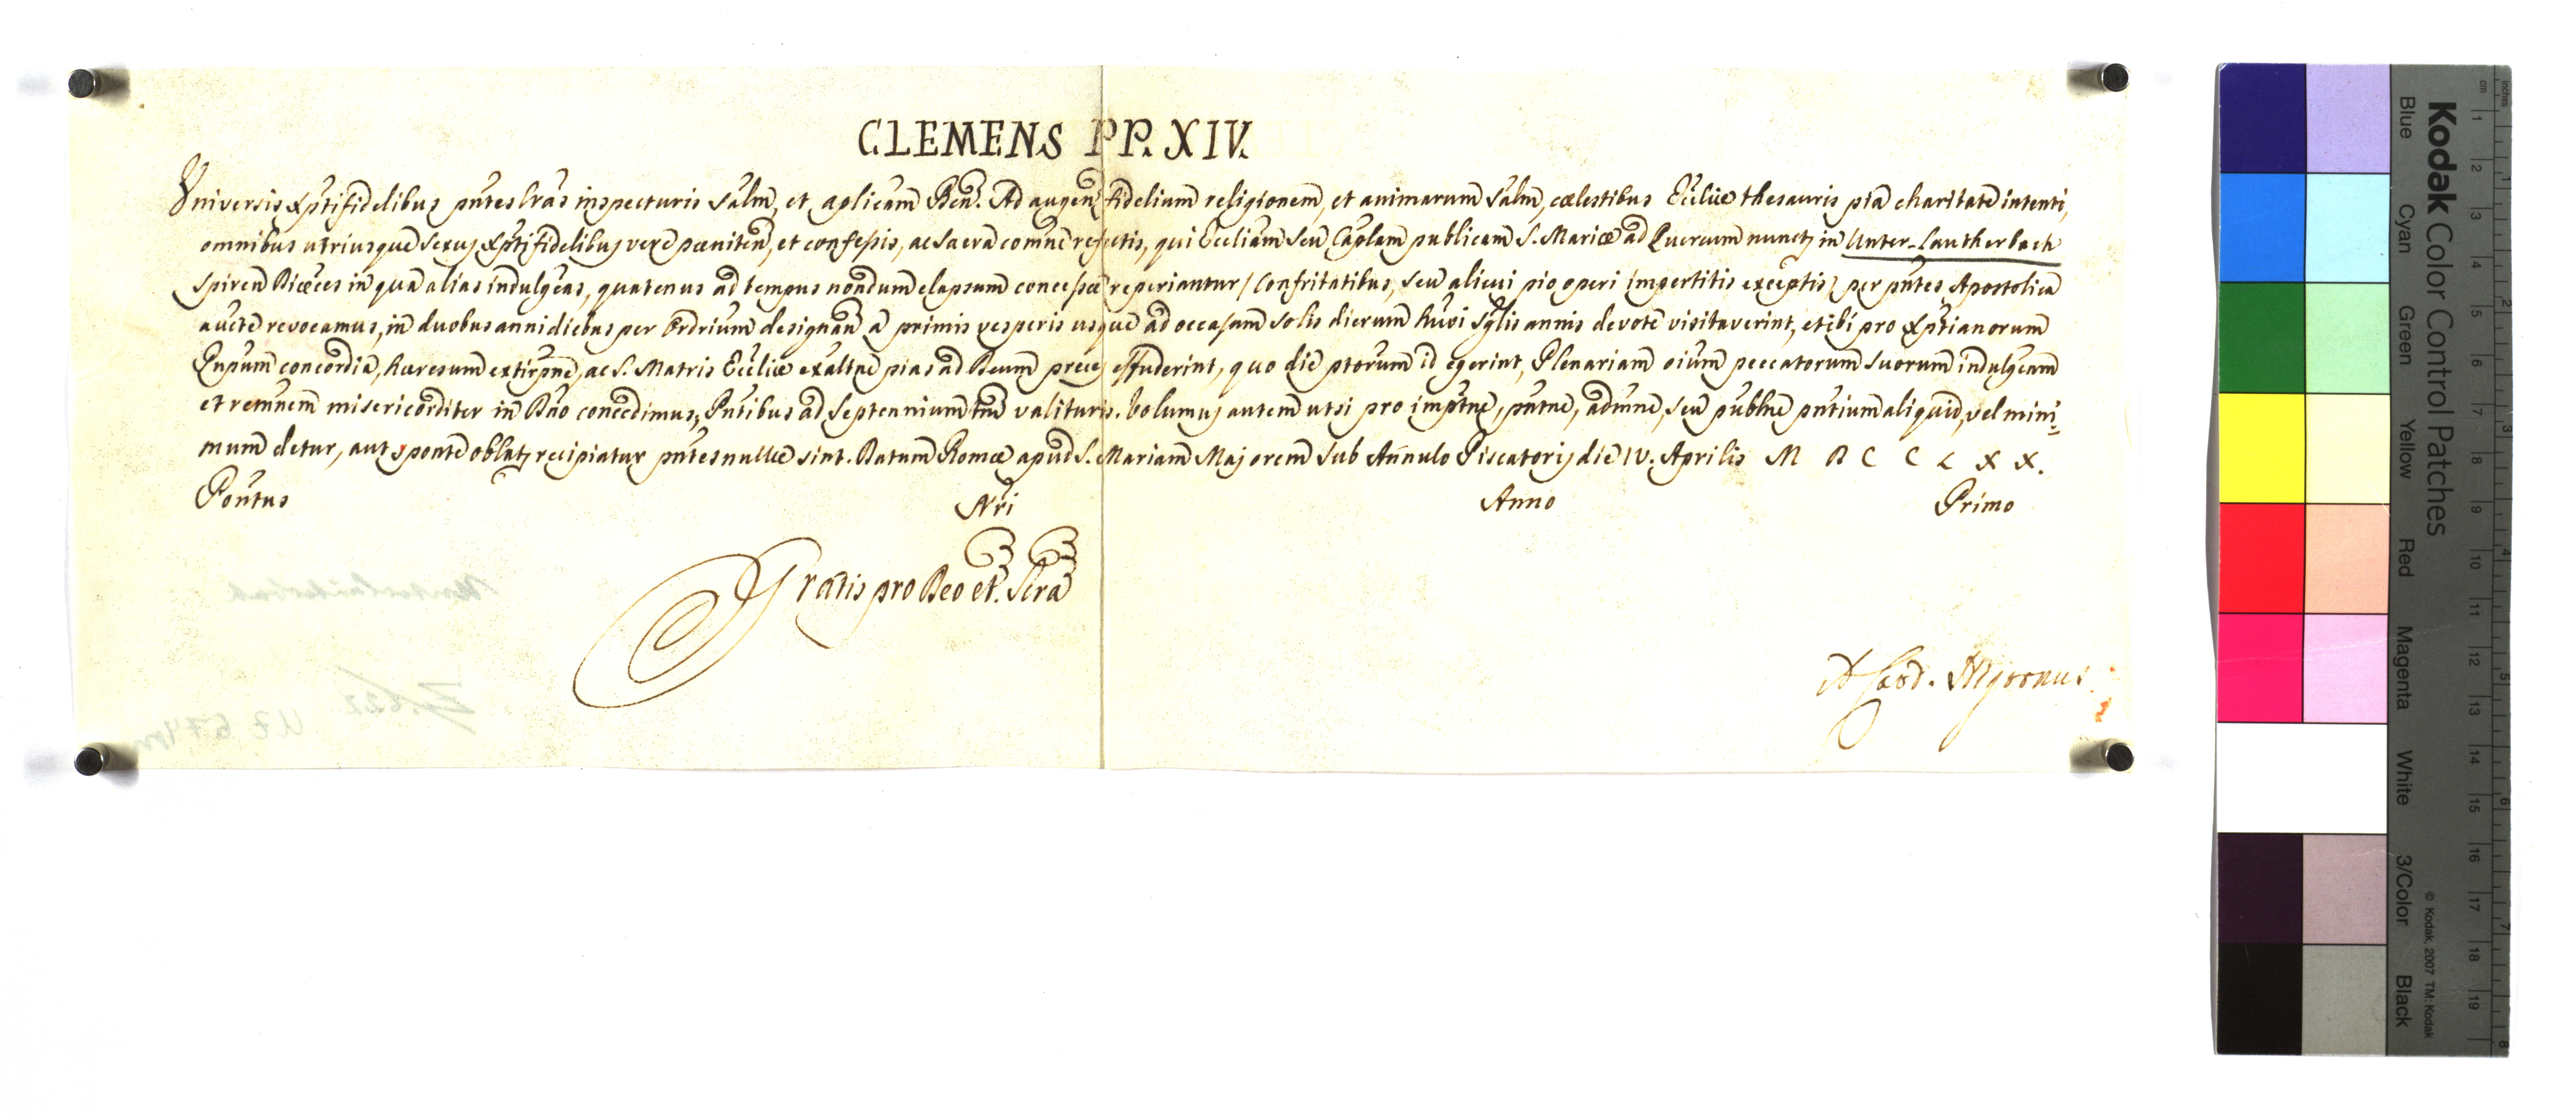 CLEMENS PP. XIV.
Universis Xpti fidelibus pntes lras inspecturis salm, et aplicam Ben. Ad augen fidelium religionem, et animarum salm, cœlestibus Ecliæ thesauris pia charitate intenti,
omnibus utriusque sexus Xpti fidelibus vere pœniten, et confessis, ac sacra comne refectis, qui Ecliam seu Caplam publicam S. Mariæ ad Quercum nuncp in Unter-Lautherbach
Spiren Diœces in qua alias indulgeas, quatenus ad tempus nondum elapsum concessæ reperiantur / Confritatibus, seu alicui pio operi impertitis exceptis / per pntes Apostolica
aucte revocamus, in duobus anni diebus per Ordrium designan a primis vesperis usque ad occasum solis dierum huvi sglis annis devote visitaverint, et ibi pro Xptianorum
Pnpum concordia, hæresum extirpne, ac S. Matris Ecliæ exaltne pias ad Deum preces effuderint, quo die ptorum id egerint, Plenariam oium peccatorum suorum indulgeam
et remnem misericorditer in Dno concedimus, Pntibus ad Septennium tm valituris. Volumus autem ut si pro imptne, pntne, admne, seu publne pntium aliquid, vel mini-
mum detur, aut sponte oblat recipiatur pntes nullæ sint. Datum Romæ apud S. Mariam Majorem sub Annulo Piscatoris die IV. Aprilis M D C C L X X.
Pontus Nri Anno Primo
Gratis pro Deo et Scra
Unterlauterbach